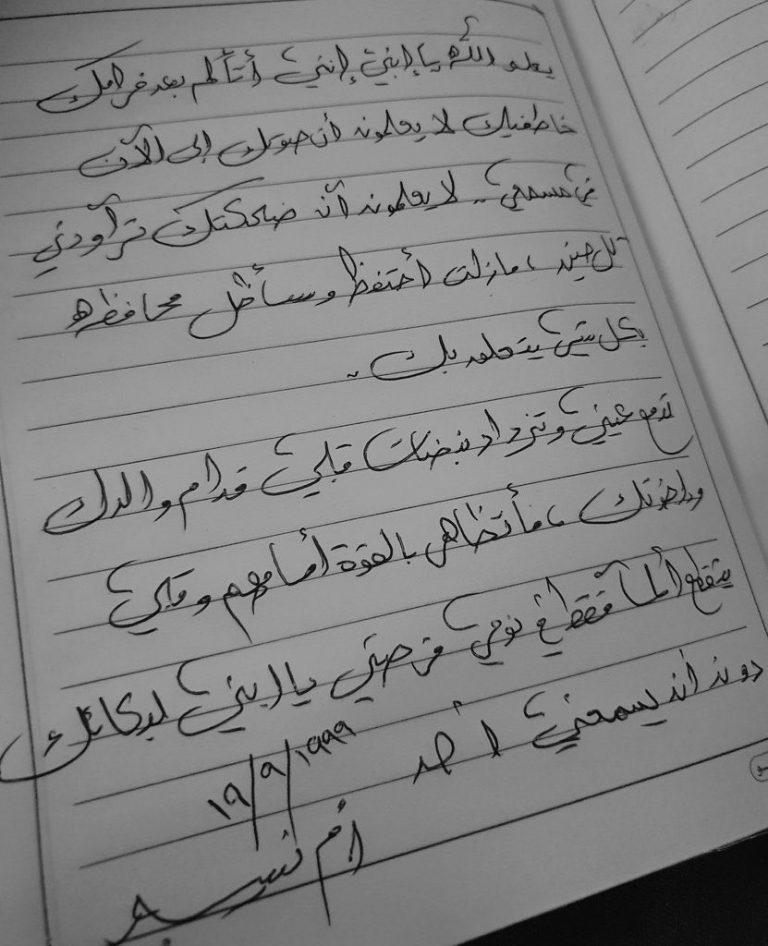 يعلم الله يا إبني إنني أتألم بعد فراقك
خاطفيك لا يعلمون أن صوتك إلى الآن
في مسمعي .. لا يعلمون أن ضحكتك تراودني
كل حين ، مازلت أحتفظ وسأظل محافظه
بكل شيء يتعلق بك .
تدمع عيني وتزداد نبضات قلبي قدام والدك
وإخوتك ، فأتظاهر بالقوة أمامهم وقلبي
يتقطع ألماً فقط في نومي فرصتي يا إبني لبكائك
دون أن يسمعني أحد
١٩/٩/١٩٩٩
أم نسيم